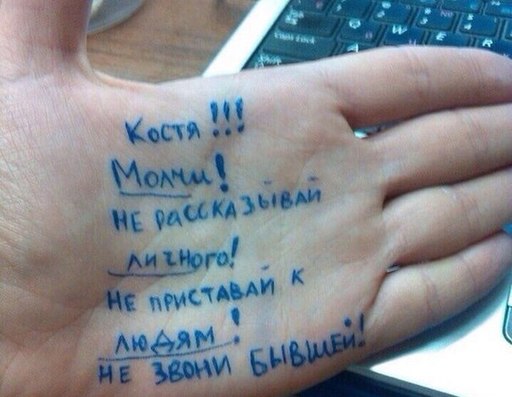 Костя!!!
Молчи!
НЕ РАССКАЗЫВАЙ
ЛИЧНОГО!
НЕ ПРИСТАВАЙ К
ЛЮДЯМ!
НЕ ЗВОНИ БЫВШЕЙ!